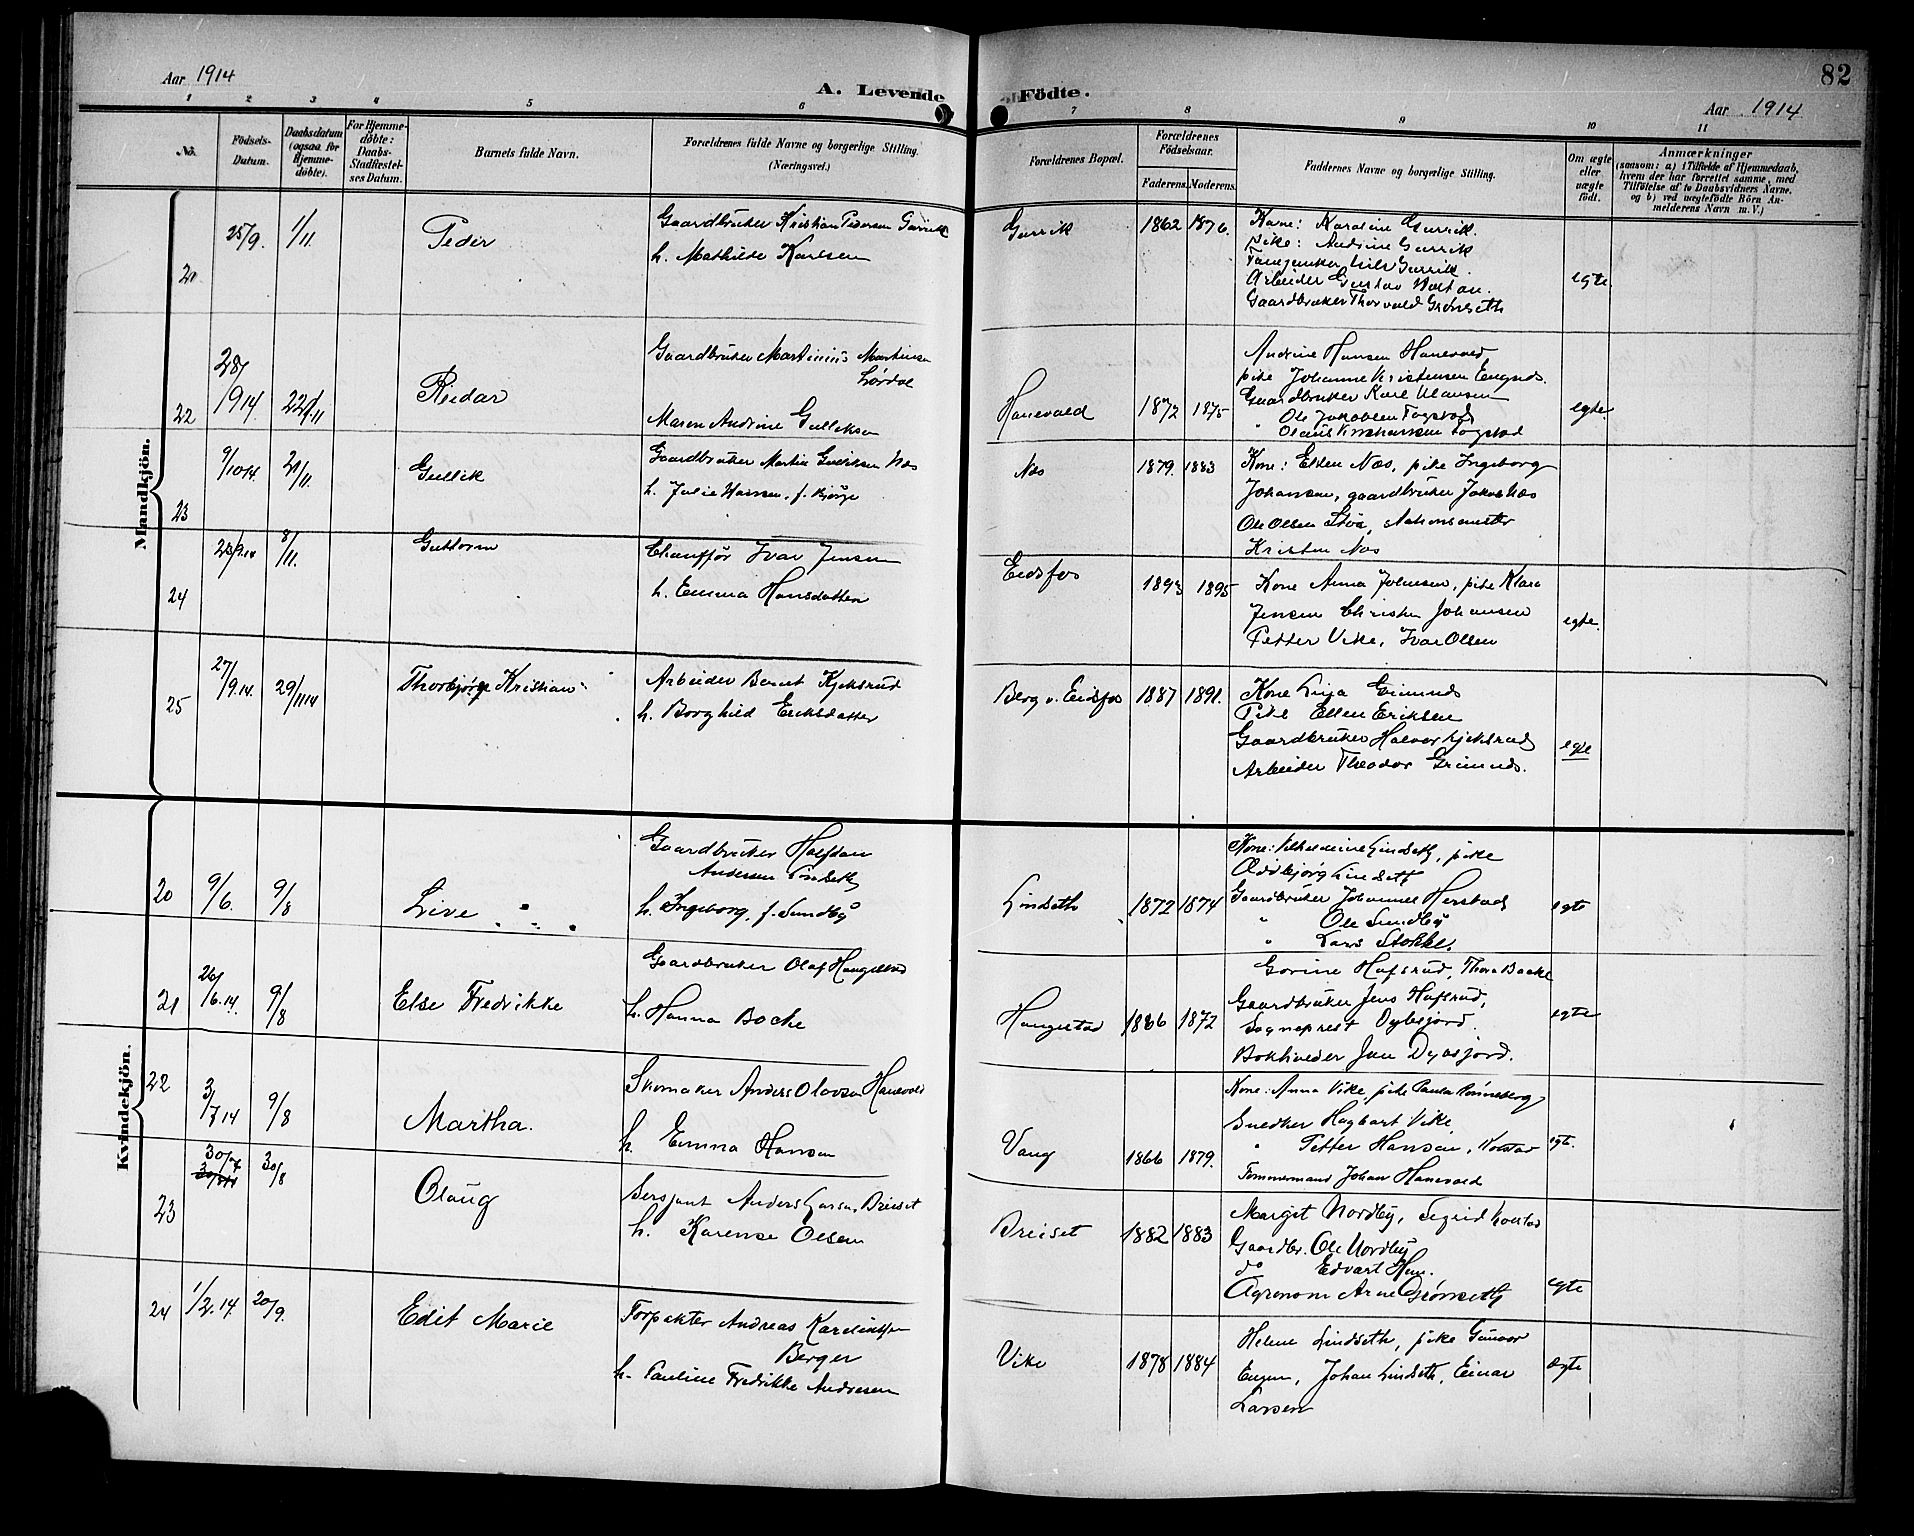 Aar 1914
A. Levende Födte.
82
Aar 1914
1 2 3 4 5 6 7 8 9 10 11
No.
Födsels-
Datum.
Daabsdatum
(ogsaa for
Hjemme-
døbte).
For Hjemme-
døbte:
Daabs-
Stadfæstel-
ses Datum.
Barnets fulde Navn.
Forældrenes fulde Navne og borgerlige Stilling.
(Næringsvei.)
Forældrenes Bopæl.
Forældrenes
Födselsaar.
Faderens.
Moderens.
Faddernes Navne og borgerlige Stilling.
Om ægte
eller
uægte
født.
Anmærkninger
(saasom: a) i Tilfælde af Hjemmedaab,
hvem der har forrettet samme, med
Tilføielse af to Daabsvidners Navne.
og b) ved uegtefödte Börn An-
melderens Navn m. V.)
Mandkjön.
21
25/9.
1/11.
Peder
Gaardbruker Kristian Pedersen Gurrik
h. Mathilde Karlsen
Gurrik
1862
1876.
Kone: Karoline Gurrik.
pike: Andrine Gurrik
Nils Gurrik.
Arbeider Gustav
Gaardbruker Thorvald Grønseth
egte.
22
28/
1914
22/11
Reidar
Gaardbruker Martinius Martinsen
Maren Andrine Gulleksen
Hanevald
1872
1875
Andrine Hansen Hanevald
pike Johanne Kristensen
Gaardbruker Karl Clausen
" Ole Jakobsen Fogstad
" Olaus Fogstad
egte
23
9/10 14.
21/11.
Gullik
Gaardbruker Martin Gulliksen Næs
h. Julie Hansen, f. Bjørge
Næs
1879.
1883
Kone: Ellen Næs, pike Ingeborg
Johansen, gaardbruker Jakob Næs
Ole Olsen stationsmester
Kristen Næs
24
8/11.
Guttorm
Chauffør Ivar Jensen
h. Emma Hansdatter
Eidsfos
1893
1895
Kone Anna Johnsen, pike Klara
Jensen Christen Johansen
Petter Vike, Ivar Olsen
egte.
25
27/9.14.
29/11 14
Thorbjørn Kristian
Arbeider Bernt Kjeksrud
h. Borghild Eriksdatter
Berg v. Eidsfos
1887
1891.
Kone
Pike Ellen Eriksen
Gaardbruker Halvor Kjeksrud
Arbeider Theodor
egte
Kvindekjön.
20
9/6.
9/8
Live
Gaardbruker Halfdan
Andersen Lindseth
h. Ingeborg, f. Sundby
Lindseth
1872
1874
Kone: Vilhelmine Lindseth, pike
Oddbjørg Lindseth
Gaardbruker Johannes Herstad
" Ole Sundby
" Lars Stokke.
egte
21
26/6.14.
9/8
Else Fredrikke
Gaardbruker Olaf Haugestad
h. Hanna Bache
Haugestad
1866
1872
Gorine Hafsrud, Thora Bache
Gaardbruker Jens Hafsrud,
Sogneprest Dybsjord.
Bokholder Jan Dybsjord.
egte
22
3/7 14
9/8
Martha.
Skomaker Anders Olavsen Hanevold
h. Emma Hansen
Vang
1866
1879.
Kone: Anna Vike, pike Paula Rønneberg
Snedker Hagbart Vike
" Petter Hansen, Kolstad
Tømmermand Johan Hanevold
egte.
23
30/7
30/8
Olaug
Sersjant Anders Larsen Breiset
h. Karense Olsen
Breiset
1882
1883
Margit Nordby, Sigrid Kolstad
Gaardbr. Ole Nordby
do Edvart
Agronom Arne Grønseth
egte
24
1/2.14.
20/9.
Edit Marie
Forpakter Andreas Karelius
Berger
h. Pauline Fredrikke Andresen
Vike
1878
1884
Helene Lindseth, pike Gunvor
Engen, Johan Lindseth, Einar
Larsen
ægte